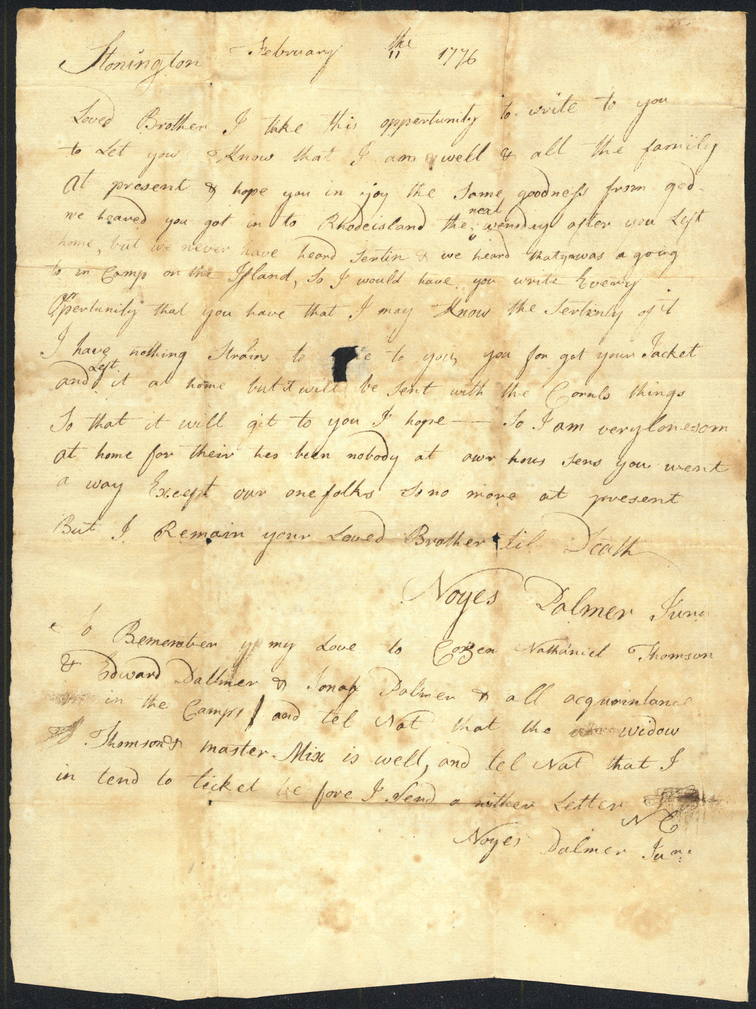 Stonington February 11 the 1776
Loved Brother I take this oppertunity to write to you
to Let you Know that I am well & all the family
At present & hope you in joy the Same goodness from god
we heared you got in to Rhodeisland the next wensday after you Left
home, but we never have heard Sertin & we heard that you was a going
to in Camp on the Island, So I would have you write Every
Oppertunity that you have that I may Know the Sertinty of it
I have nothing Strain to e to you, you for got your Jacket
and Left it at home but it will be Sent with the Cornls things
So that it will git to you I hope — So I am very lonesom
at home for their hes been nobody at owr hous Sens you went
a way Except our one folks So no more at present
But I Remain your Loved Brother til Death
Noyes Palmer Junr
So Remember my Love to Cozen Nathaniel Thomson
& Edward Pallmer & Jonas Palmer & all acquaintance
in the Camps and tel Nat that the widow
Thomson & master Mix is well, and tel Nat that I
in tend to ticket be fore I Send a nither Letter
N E
Noyes Palmer Junr